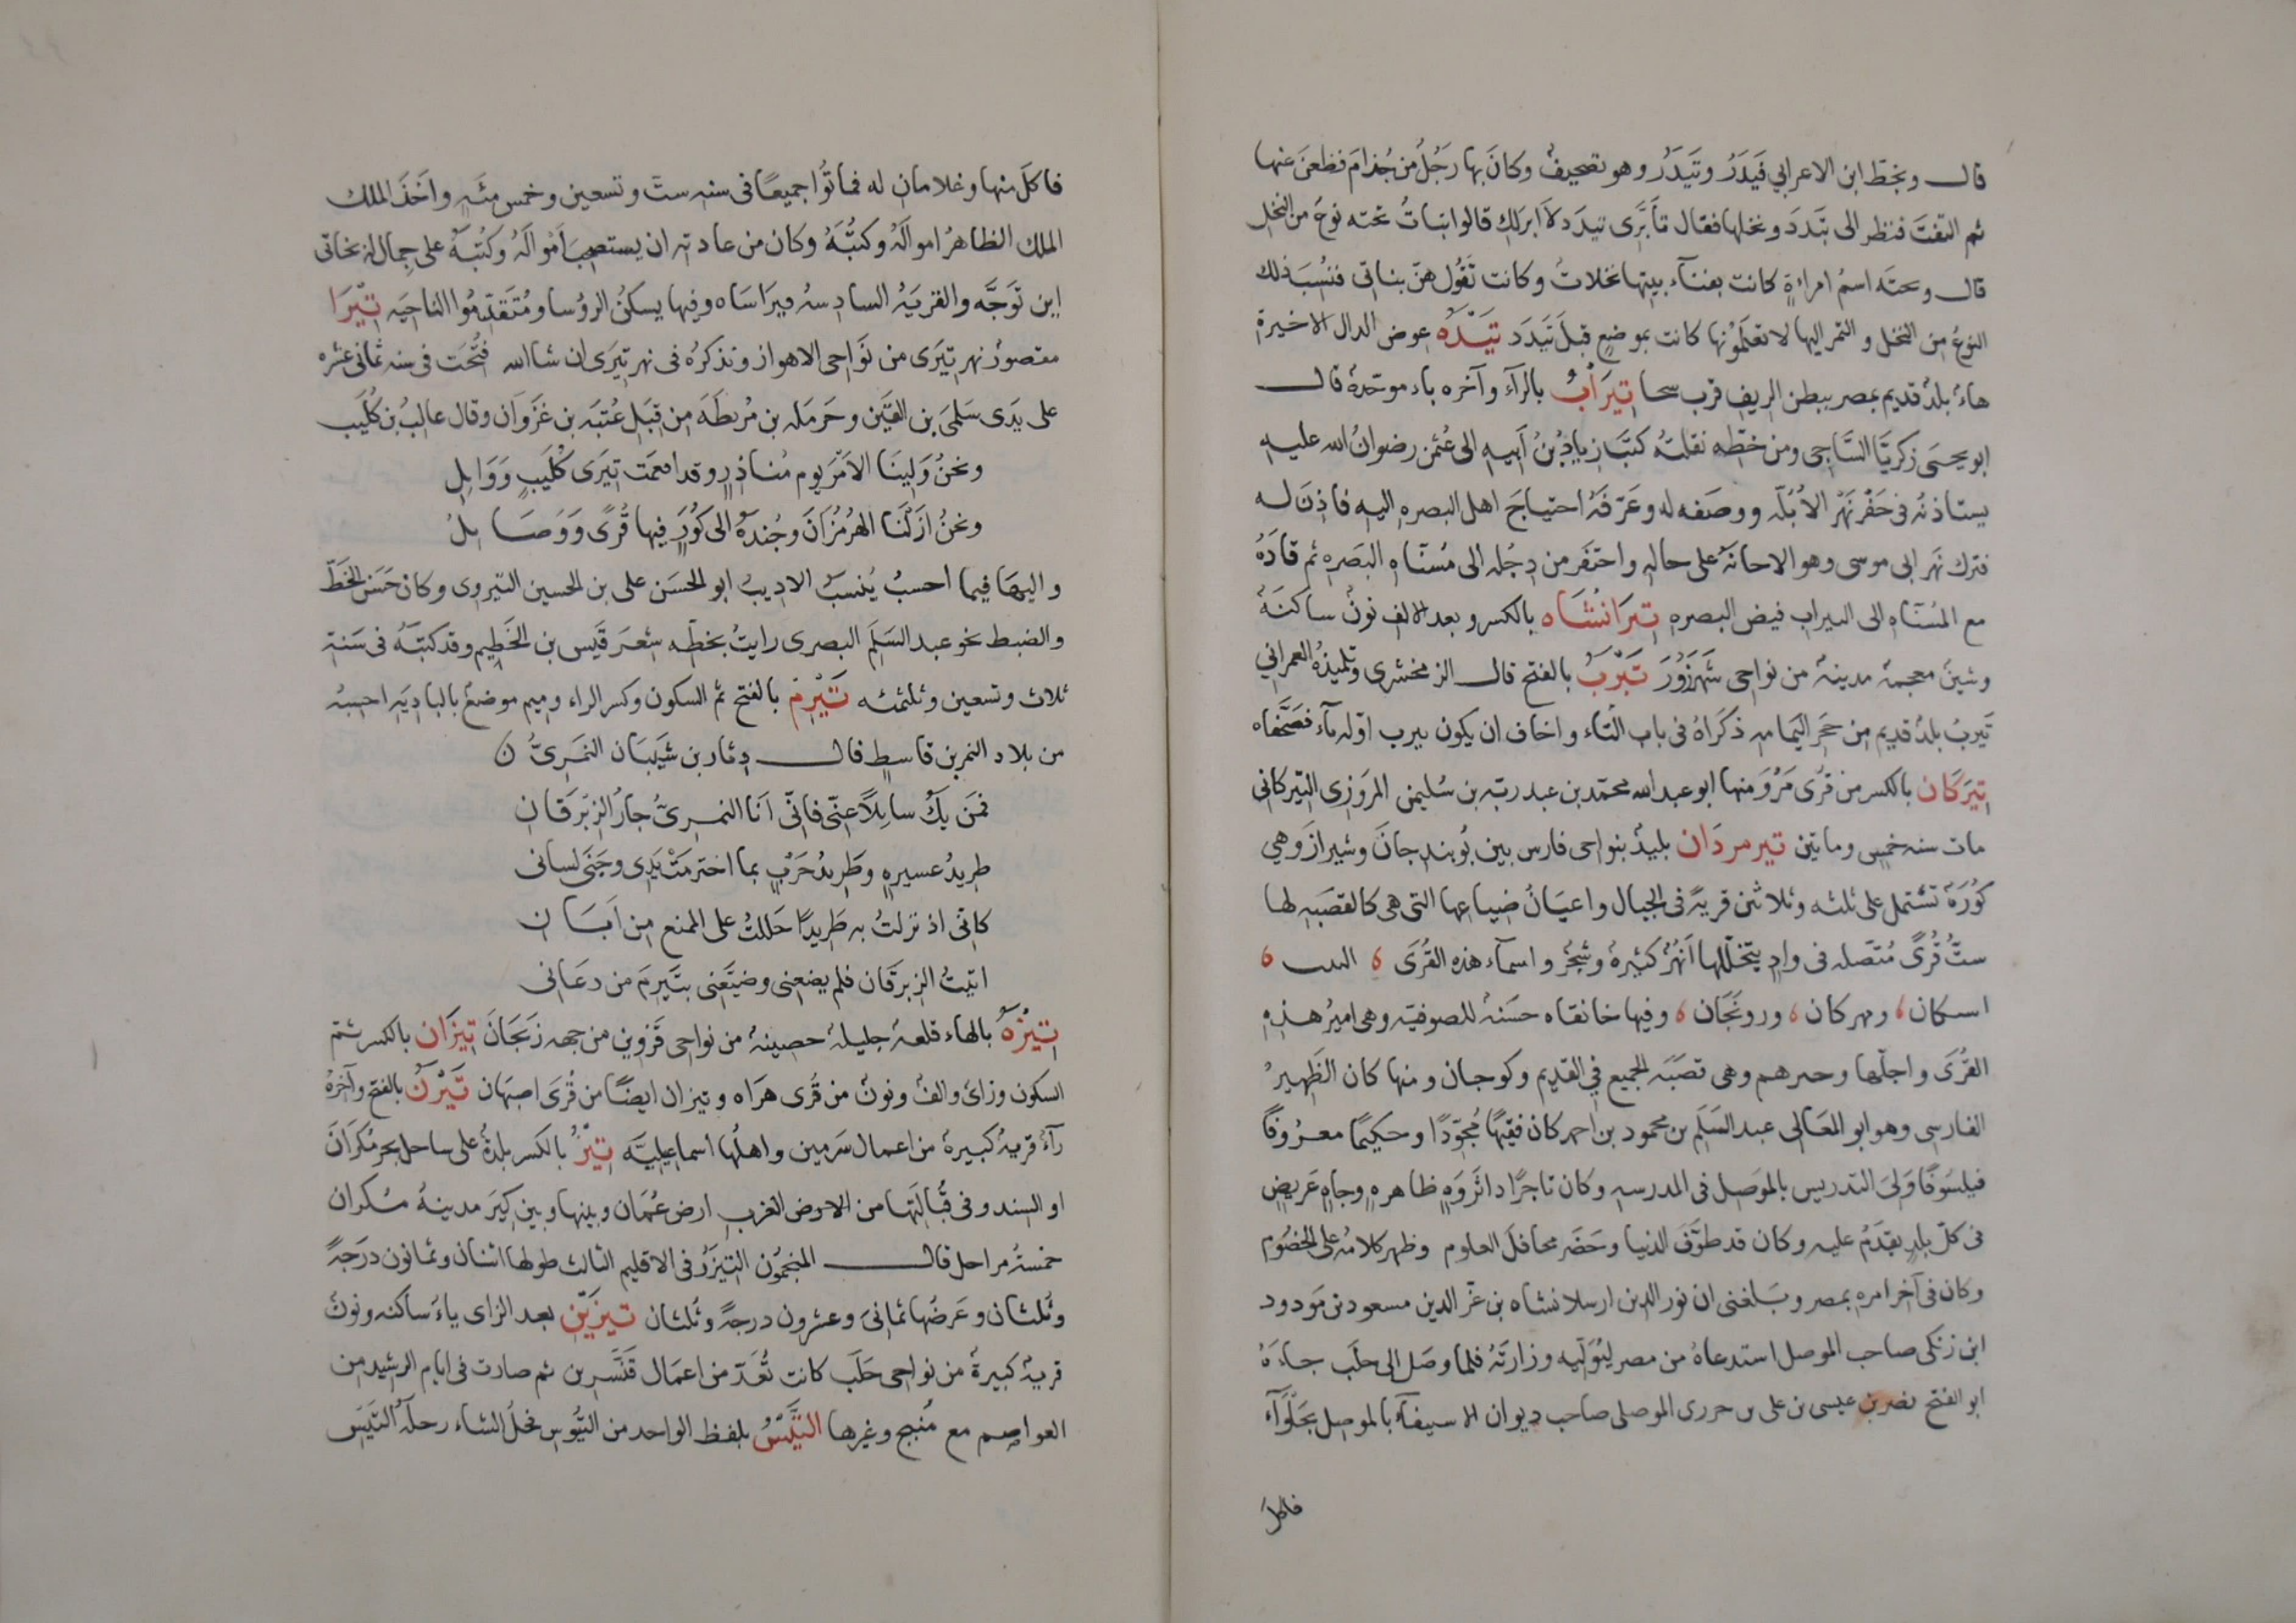 قال وبخط ابن الاعرابي فَيَدَدُ وتَيَدَدُ وهو تصحيفٌ وكانَ بها رَجُلٌ من جُذامَ فظعنَ عنها
ثم التفتَ فنظر الى تَيَدَدَ ونخلها فقال تأبَّرى تيدَد لاَ ابرلك قالوا نباتُ نحته نوع من النخل
قال ونحته اسمُ امراءةٍ كانت بفناء بيتها نخلاتٌ وكانت تَقُول هنّ بناتى فنُسِبَ ذلك
النوعُ من النخل و التمر اليها لا تعلمونها كانت بموضعٍ قبلَ تَيَدَد تَيْدَه عوض الدال الاخيرة
هاءٌ بلدٌ قديم بمصر ببطن الريف قرب سخا تِيرَابُ بالراء وآخره باء موحّدة قال
ابو يحيى زكريّا السَّاجى ومن خطّه نقلتُه كتَبَ زيادُ بْنُ اَبيه الى عُثمن رضوانُ الله عليه
يستاذنه فى حَفْر نَهْر الاُبُلّه ووصَفه له وعَرّفَهُ احتياجَ اهل البصره اليه فاذِنَ له
فترك نَهر ابى موسى وهو الاحانَه على حاله واحتفَر من دِجْله الى مُسنّاهِ البَصَره ثم قادَهُ
مع المُسنّاه الى التيراب فيض البصره تِيرَانْشَاه بالكسر وبعد الالف نونٌ ساكنَة
وشينٌ معجمة مدينة من نواحى شَهَرَزُورَ تَيْرَبُ بالفتح قال الزمخشرى وتلميذهُ العمرانى
تَيربُ بلدٌ قديم من حَجَر اليَمامه ذكَراهُ فى باب التاء واخاف ان يكون يترب اوّله ياء فصَحَّفاه
تِيرَكَان بالكسر من قُرَى مَرْوَ منها ابو عبد الله محمّد بن عبد ربّه بن سُليمن المَروَزِى التِيركانى
مات سنه خمسٍ وماتين تيرمردَان بليدٌ بنواحى فارس بين نُوبندجانَ وشيرازَ وهى
كُورَة تشتمل على ثلثه وثلاثين قريةً فى الجبال واعيَانُ ضياعها التى هى كالقصَبه لها
ستُّ قُرًى مُتّصله فى وادٍ يتخلّلها اَنهُرٌ كثيرةٌ وشجرٌ واسمآء هذه القُرَى
اسكان ومهركان ورونجَان وفيها خانقاه حسَنة للصوفيّه وهى اميرُ هذه
القُرَى واجلّها وهى قصَبَه الجميع فى القديم وكوجان ومنها كان الظَهيرُ
الفارسى وهو ابو المعَالى عبد السَلَم بن محمود بن احمد كان فقيهًا مُجوّدًا وحكيمًا معروفًا
فيلسَوفًا وَلِىَ التدريس بالموَصِل فى المدرسه وكان تاجرًا ذا ثَروَهٍ ظاهرهٍ وجاهٍ عَريضٍ
فى كلّ بلدٍ يقدَمُ عليه وكان قد طوَّفَ الدنيا وحَضَر محافلَ العلوم وظهر كلامُه على الخصُوم
وكان فى آخر امره بمصر وبَلغنى ان نور الدين ارسلانشاه بن عزّ الدين مسعود بن مَودود
ابن زنكى صاحب الموصل استدعاهُ من مصر ليُوَلّيه وزارتَهُ فلما وصَل الى حلَب جاءَهُ
ابو الفتح نصر بن عيسى بن على بن حررى الموصلى صاحب ديوان الاستيفآ بالموصل بحَلْوَآء
فاكلَ
فاكلَ منها وغلامان له فماتُوا جميعًا فى سنه ستّ وتسعين وخمس مئَهٍ واخَذَ الملك
الملك الظاهرُ اموالَهُ وكتبَهُ وكان من عادته ان يستصحبَ اَموالَهُ وكُتبَهُ على جمالٍ له بخاتى
اين توجَّه والقريَةُ السادسه ميرَاسَاه وفيها يسكنُ الرؤسا ومُتقدّمُوا الناحيَه تِيرَا
مقصورٌ نهر تِيَرى من نَواحى الاهواز ونذكرُه فى نهر تِيَرى ان شا الله فتُحَت فى سنه ثمانى عشره
على يَدَى سَلمَى بن القَيَن وحَرمَله بن مُريطَهَ من قِبَل عُتبَه بن غَزَوان وقال غالبُ بن كُلَيب
ونحنُ وَلِينَا الامْرَ يوم مُناذرٍ وقد اقمعَت تِيَرى كُلَيبٍ وَوَايِل
ونحنُ ازَلْنَا الهُرمُزَانَ وجُندَهُ الى كُوَرٍ فيها قُرًى وَوَصَايِلُ
واليهَا فيما احسبُ يُنسَبُ الاديبُ ابو الحسَن على بن الحسين التيروى وكان حَسَنَ الخَطّ
والضبط نحو عبد السَلَم البصرى رايتُ بخطّه شِعَر قَيس بن الخَطِيم وقد كتبَهُ فى سَنة
ثلاث وتسعين وثلثمئه تَيْرِمُ بالفتح ثم السكون وكسر الراء وميم موضعٌ بالباديَه احسبُه
من بلاد النمر بن قاسطٍ قال دِثار بن شَيبَان النمَرِىُّ
فمَن يَكُ سايلاً عنّى فانّى اَنا النمرىُّ جارُ الزبْرقَانِ
طريدُ عسيرهٍ وطَريدُ حَرْبٍ بما اخترمَتْ يَدِى وجَنَى لسانى
كانّى اذ نزلتُ به طَريدًا حَللتُ على الممنع من اَبَانِ
اتيتُ الزبرقان فلم يضعنى وضيّعَنى بتَيِرمَ من دعَانى
تِيْرَهْ بالهاء قلعه جليلة حصينة من نواحى قَزوين من جهه زَنجَانَ تِيزَان بالكسر ثم
السكون وزاىٌ والفٌ ونونٌ من قُرى هرَاه وتيزان ايضًا من قُرَى اصبَهان تَيْزَرُ بالفتح وآخرهُ
رآءٌ قريةٌ كبيرة من اعمال سَرمين واهلُها اسماعيليَّه تِيْزُ بالكسر بلدةٌ على ساحل بحر مُكرَانَ
او السند وفى قُبَالتَها من الارض الغرب ارض عُمَان وبينها وبين كِيزَ مدينةُ مُكران
خمسةُ مراحل قال المنجمُون التِيزُ فى الاقليم الثالث طولها اثنان وثمانون درَجةً
وثُلثان وعَرضُها ثمانى وعشرون درجةً وثُلثان تيزِيْنِ بعد الزاى ياءٌ ساكنه ونونٌ
قريةٌ كبيرة من نواحى حَلَب كانت تُعَدّ من اعمَال قَنَّسرين ثم صارت فى ايام الرشيد من
العواصِم مع مَنبج وغيرها التَّيْسُ بلفظ الواحد من التُيُوس فحلُ الشاء رحلهُ التَيَس